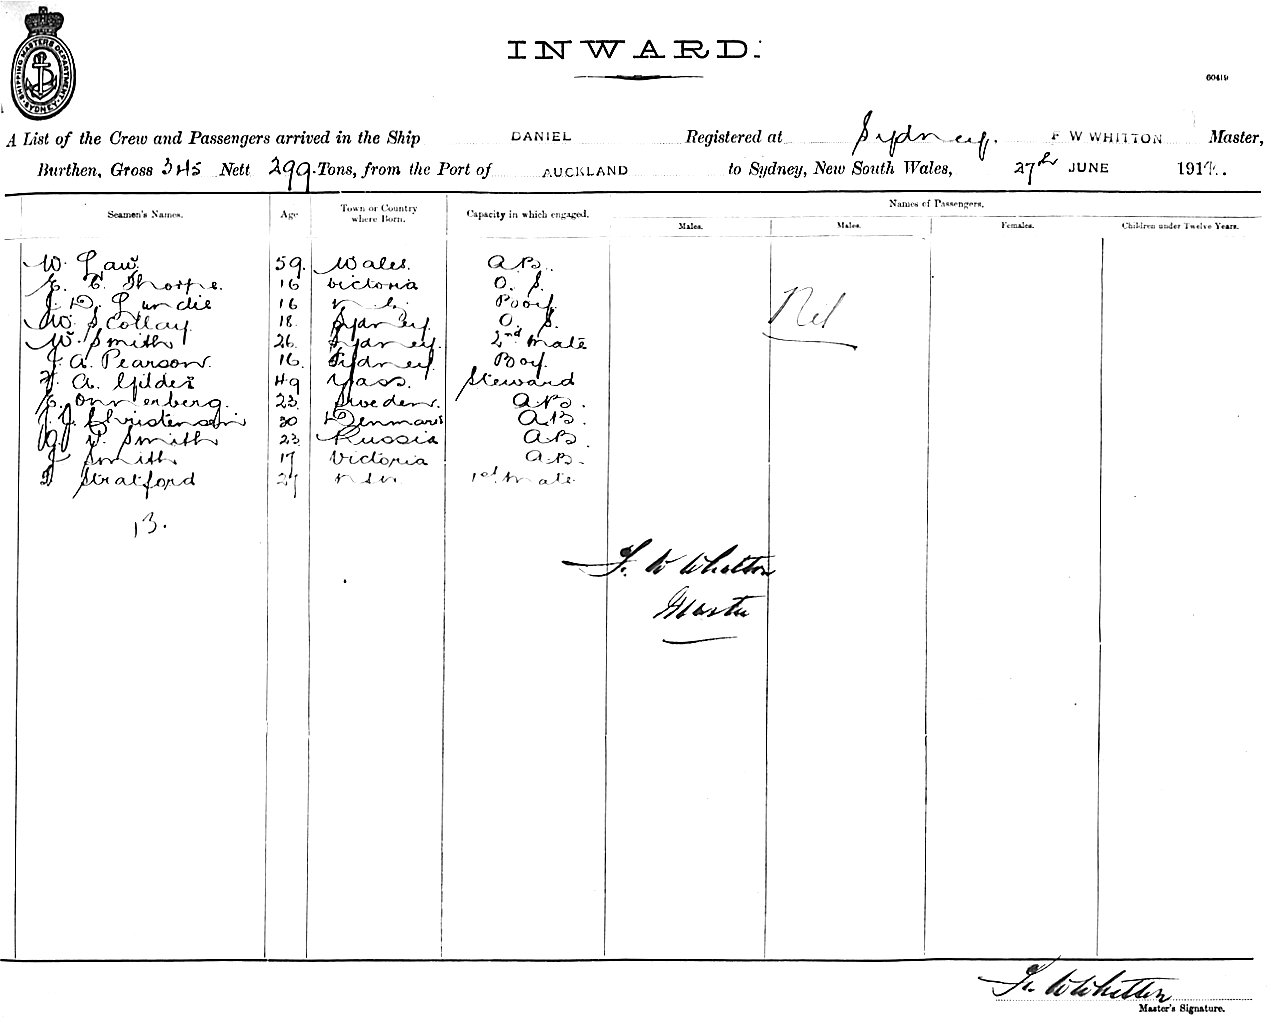 SHIPPING MASTERS DEPARTMENT SYDNEY
INWARD.
60419
A List of the Crew and Passengers arrived in the Ship DANIEL Registered at Sydney. F W WHITTON Master,
Burthen, Gross 345 Nett 299 Tons, from the Port of AUCKLAND to Sydney, New South Wales, 27th JUNE 191
Names of Passengers.
Seamen's Names. Age Town or Country where Born. Capacity in which engaged. Males. Males. Females. Children under Twelve Years.
W. Law 59. Wales. A B.
E. E. Thorpe. 16 Victoria O. S.
J. D. Lundie 16 Boy
W. S Collay. 18. Sydney. O. S.
W. Smith 26. Sydney. 2nd Mate
J. A. Pearson. 16. Sydney. Boy.
A. Gilder 49 Yass. Steward
Onnerberg. 23. Sweden. A B.
J. J. Christensen 30 Denmark A B.
Smith 23 Russia A B.
J Smith 17 Victoria A B.
Stratford 27 N S W 1st Mate
Nil
13.
F. W Whitton
Master
F. W Whitton
Master's Signature.